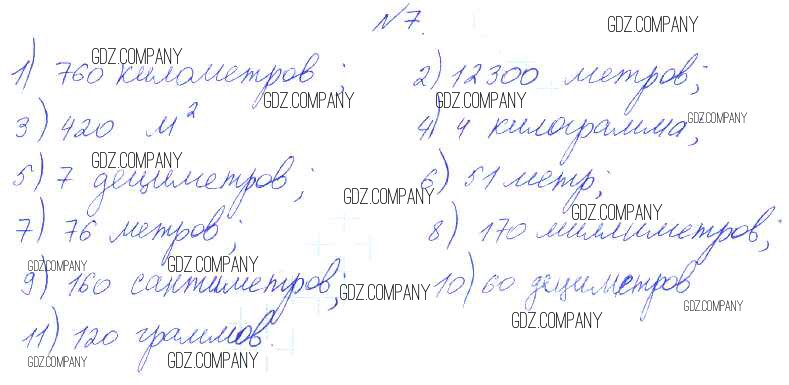 №7.
GDZ.COMPANY
GDZ.COMPANY
1) 760 километров; 2) 12300 метров;
GDZ.COMPANY GDZ.COMPANY
3) 420 м² 4) 4 килограмма;
GDZ.COMPANY
GDZ.COMPANY
5) 7 дециметров; 6) 51 метр;
GDZ.COMPANY
GDZ.COMPANY
7) 76 метров; 8) 170 миллиметров;
GDZ.COMPANY GDZ.COMPANY
9) 160 сантиметров; 10) 60 дециметров
GDZ.COMPANY
GDZ.COMPANY
GDZ.COMPANY
11) 120 граммов.
GDZ.COMPANY GDZ.COMPANY